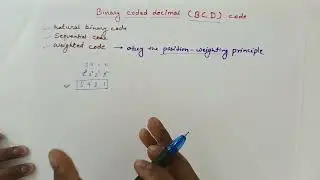 Binary coded decimal (BCD) code
Natural binary code
Sequential code
Weighted code → obey the position-weighting principle
8 4 2 1